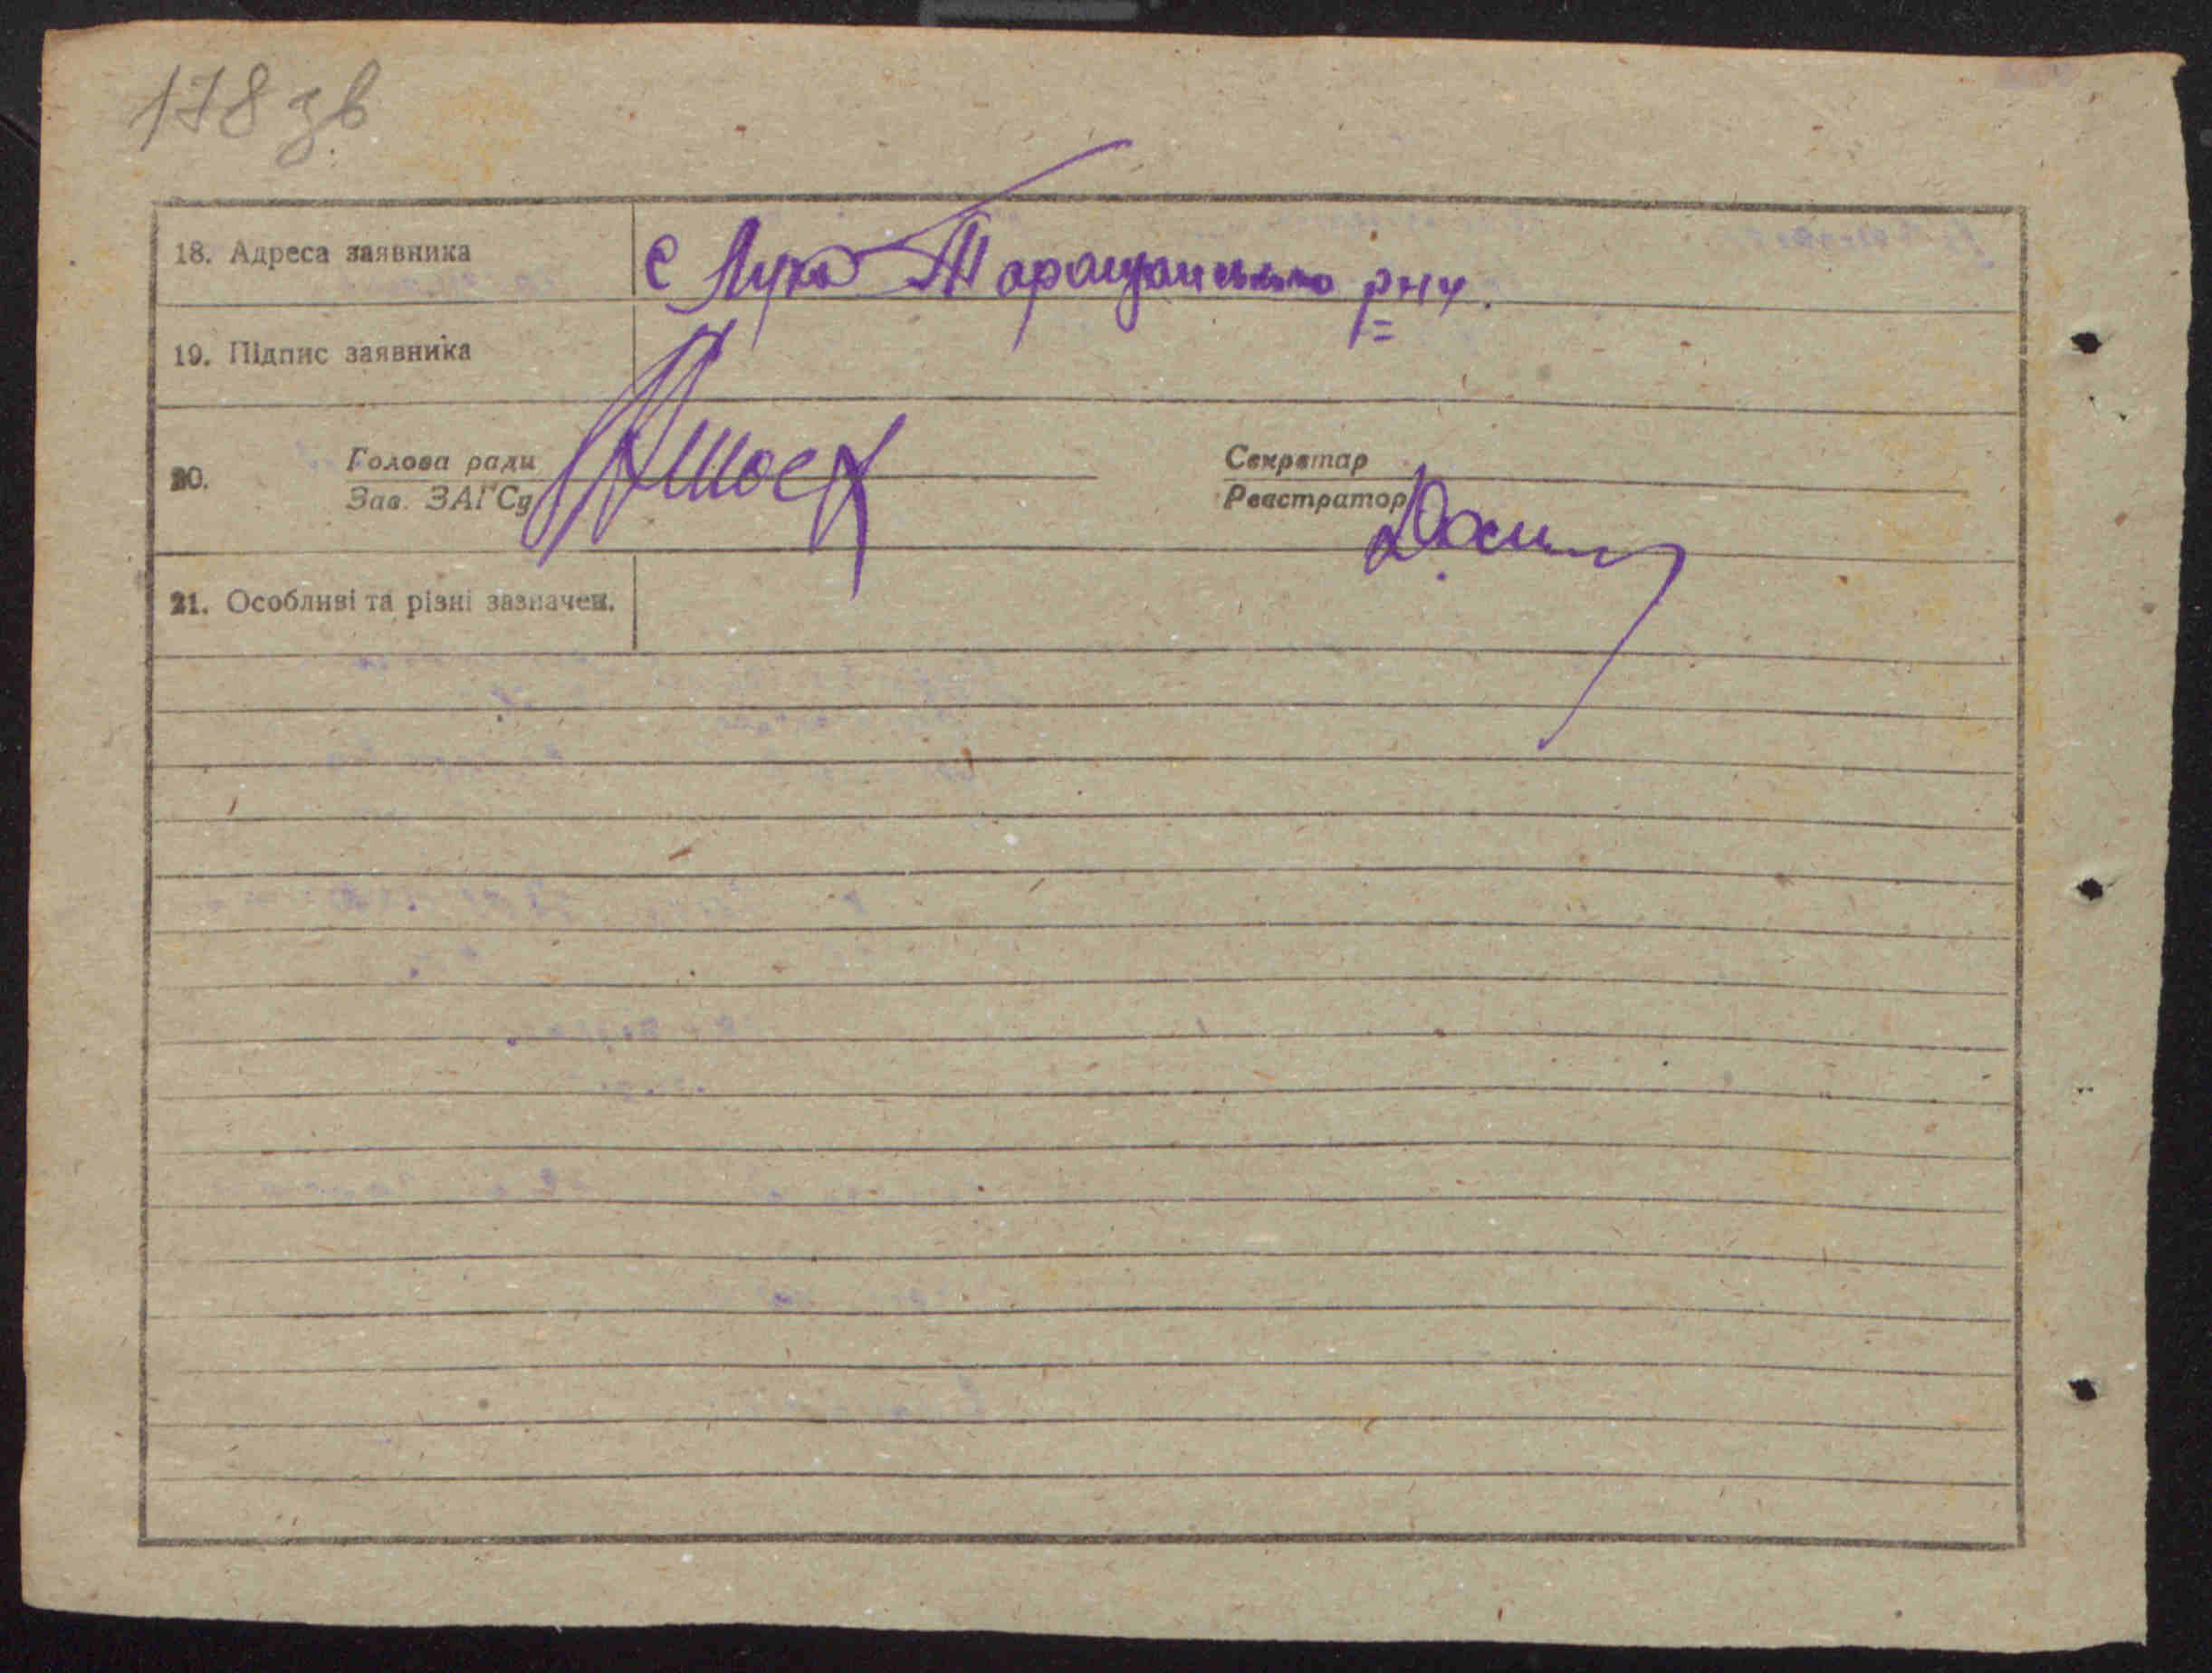 178 зв
18. Адреса заявника с Лука Таращанського р-ну.
19. Підпис заявника
20. Голова ради Секретар
Зав. ЗАГСу Реєстратор
21. Особливі та різні зазначен.